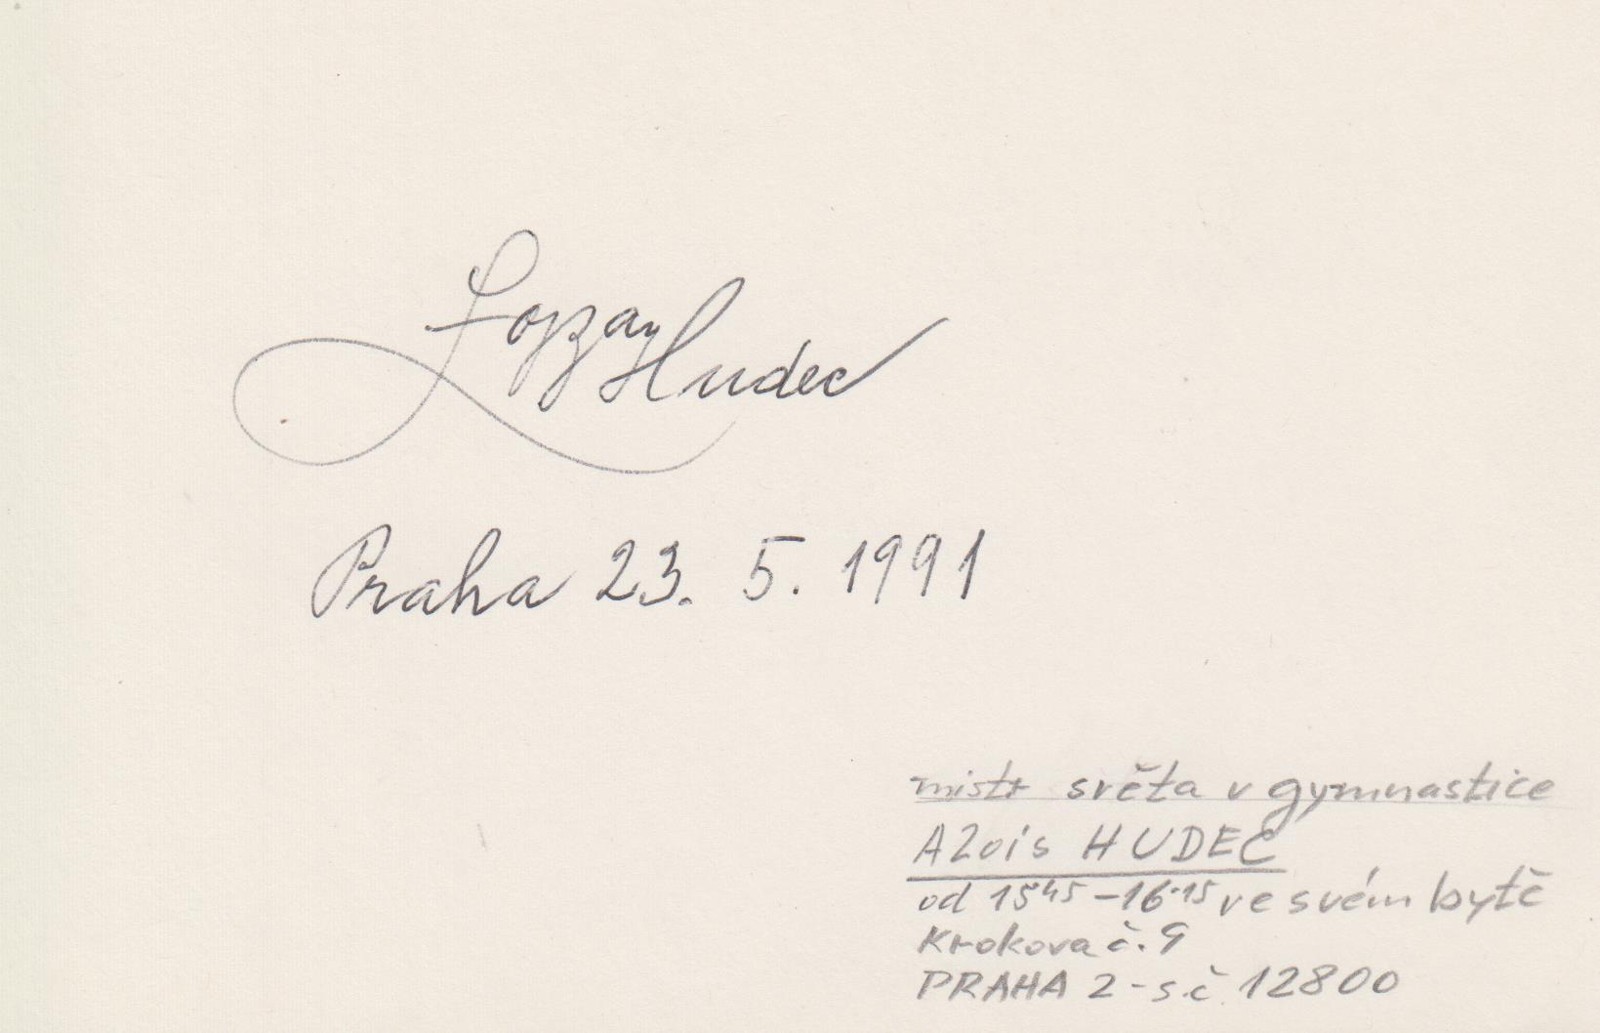 Lojzay Hudec
Praha 23. 5. 1991
mistr světa v gymnastice
Alois HUDEC
od 15⁴⁵ – 16·¹⁵ ve svém bytě
Krokova č. 9
PRAHA 2 - s.č. 12800